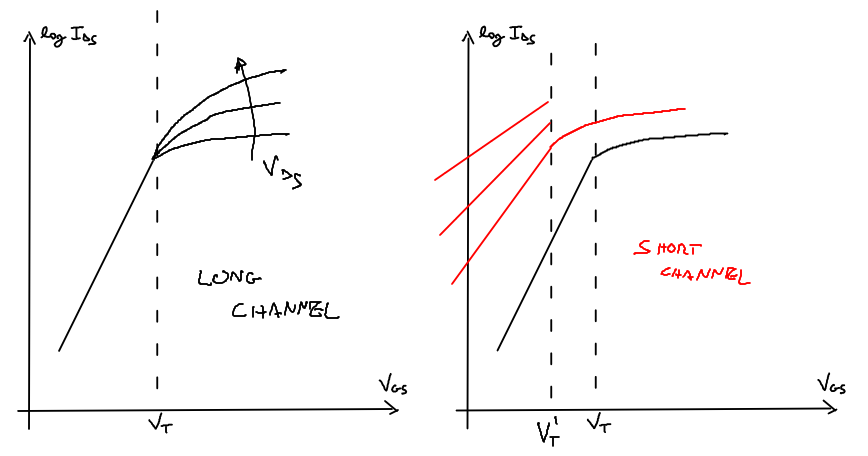 log IDS
VDS
LONG
CHANNEL
VGS
VT
log IDS
SHORT
CHANNEL
VGS
VT'
VT